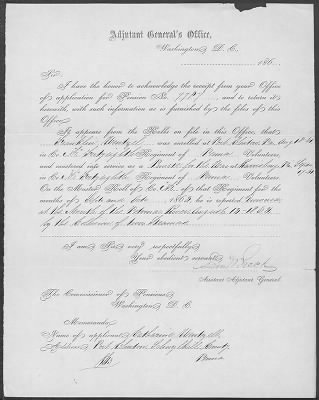 Adjutant General's Office,
Washington, D. C.
186
Sir:
I have the honor to acknowledge the receipt from your Office
of application for Pension No. and to return it
herewith, with such information as is furnished by the files of this
Office.
It appears from the Rolls on file in this Office, that
Franklin was enrolled at Port Clinton, Pa. Aug
in Co. Regiment of Penna Volunteers,
and mustered into service as a at Harrisburg, Pa.
in Co. Regiment of Penna Volunteers,
On the Muster Roll of Co. of that Regiment for the
months of Sept and Oct, 1862, he is reported Drowned
at the Mouth of the Potomac River, August 13 1862
by the Collision of two Steamers
I am, Sir, very respectfully,
Your obedient servant,
Assistant Adjutant General.
The Commissioner of Pensions,
Washington, D. C.
Memoranda:
Name of applicant, Catharine
Address, Port Clinton, Schuylkill County
Penna